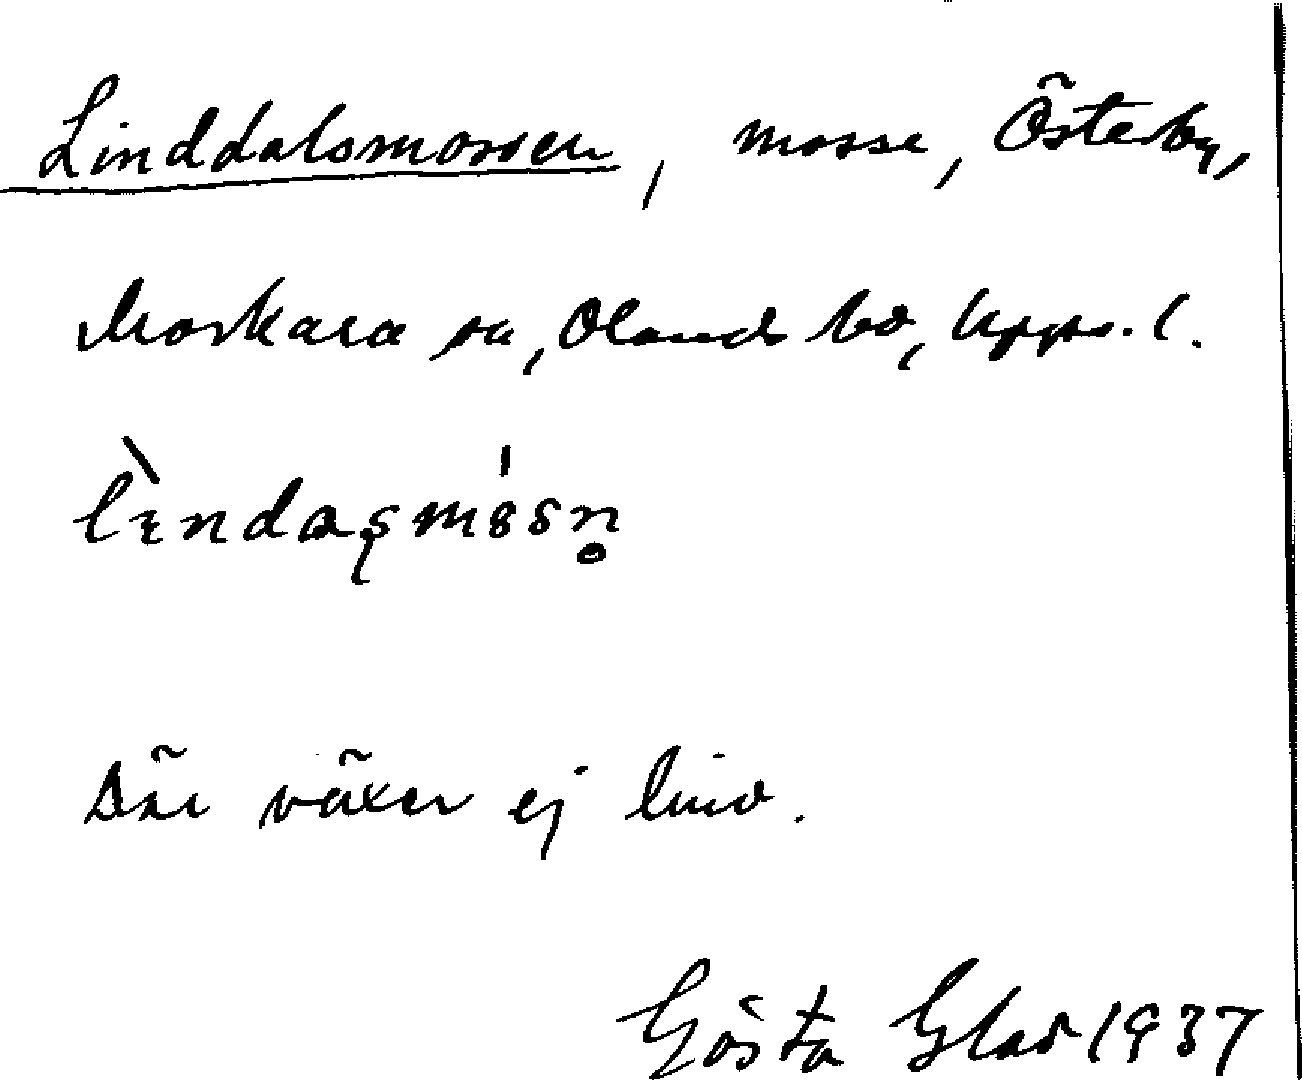 Linddalsmossen, mosse, Österby,
Morkarla sn, Olands hd, Upps. l.
Där växer ej lind.
Gösta Glad 1937